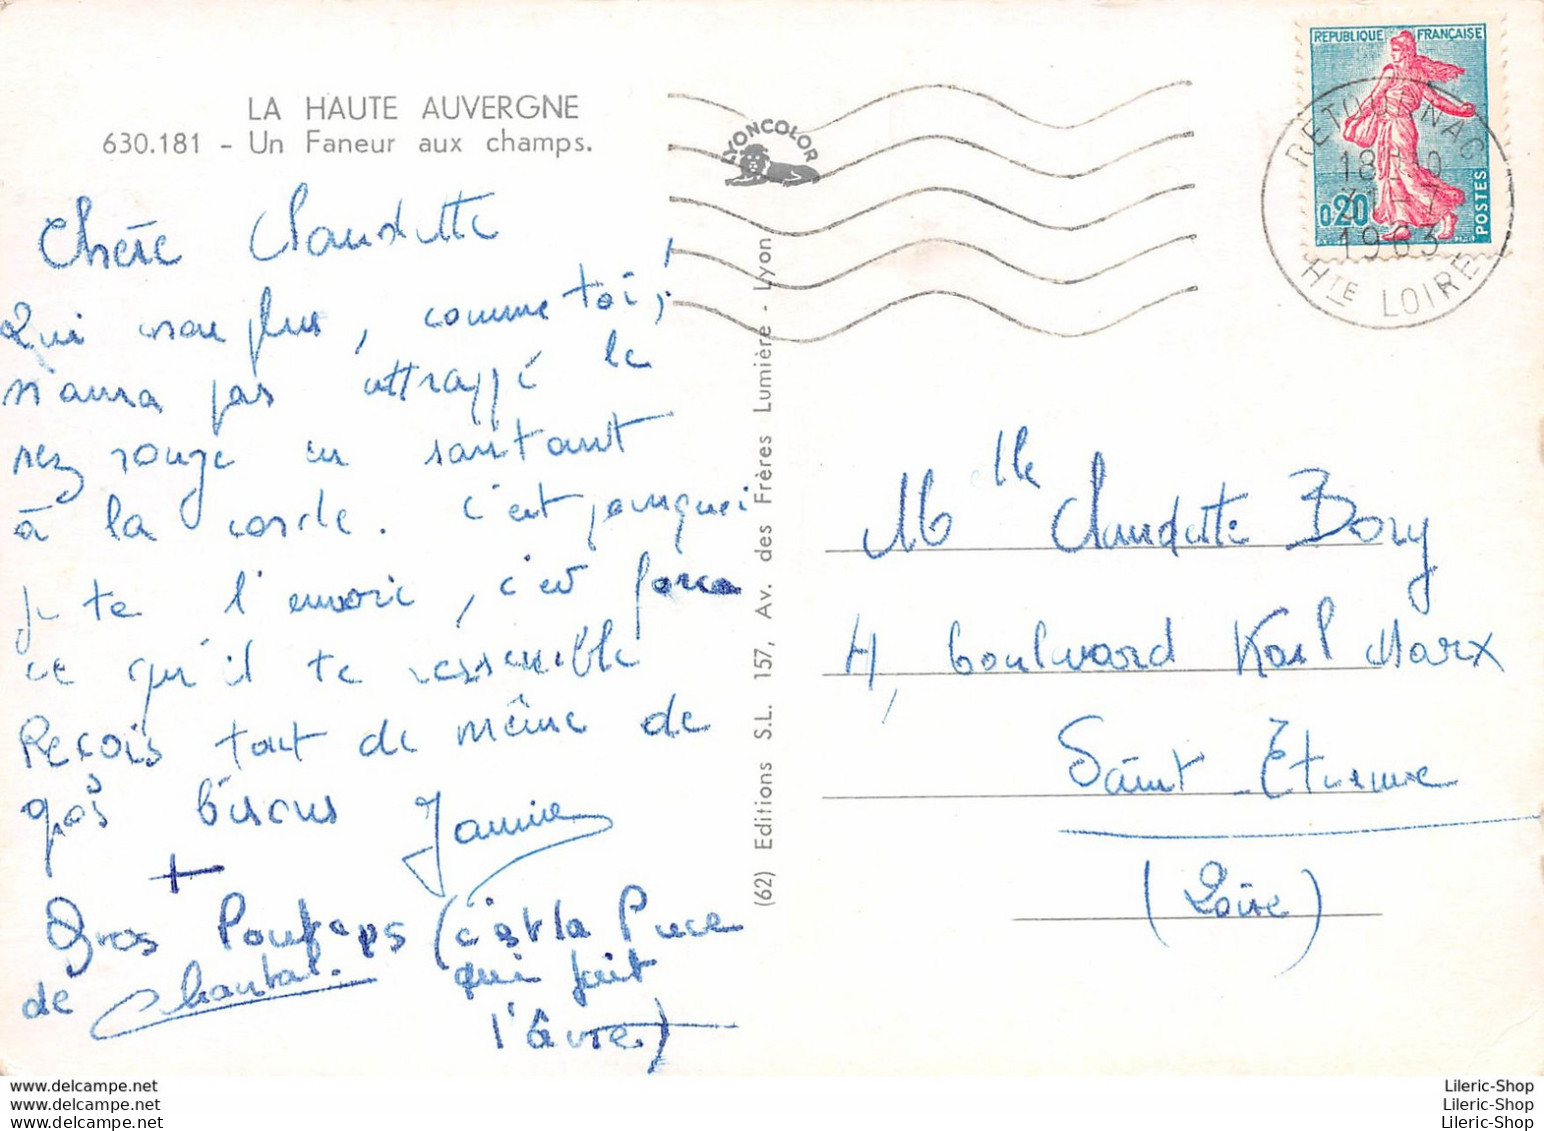 LA HAUTE AUVERGNE
630.181 - Un Faneur aux champs.
Chère Claudette
Qui non plus, comme toi,
n'aura pas attrappé le
nez rouge en sautant
à la corde. C'est pourquoi
je te l'envoie, c'est parce
ce qu'il te ressemble
Reçois tout de même de
gros bisous Jannie
+
Gros Poutous (c'est la Puce
de Chantal. qui fait
l'âvre)
(62) Editions S.L. 157, Av. des Frères Lumière - Lyon
LYONCOLOR
REPUBLIQUE FRANÇAISE
0,20
POSTES
RETOURNAC
18H
31 - 7
1963
HTE LOIRE
Mlle Claudette Bory
4, boulevard Karl Marx
Saint-Etienne
(Loire)
www.delcampe.net
www.delcampe.net
www.delcampe.net
Lileric-Shop
Lileric-Shop
Lileric-Shop